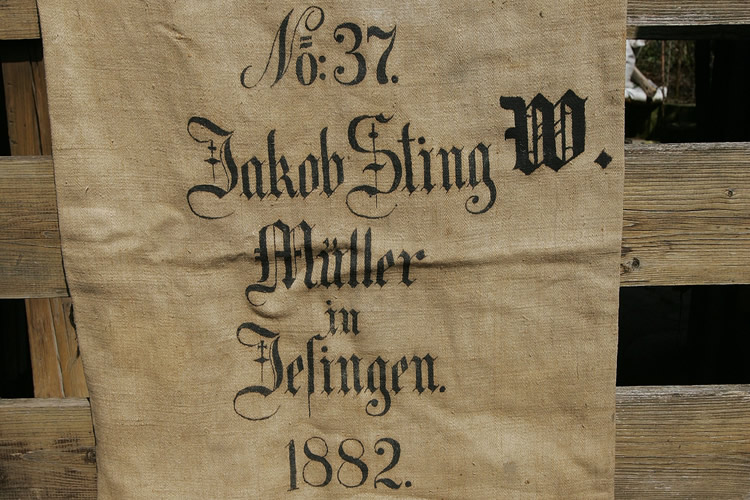 No: 37.
Jakob Sting W.
Müller
in
Jesingen.
1882.